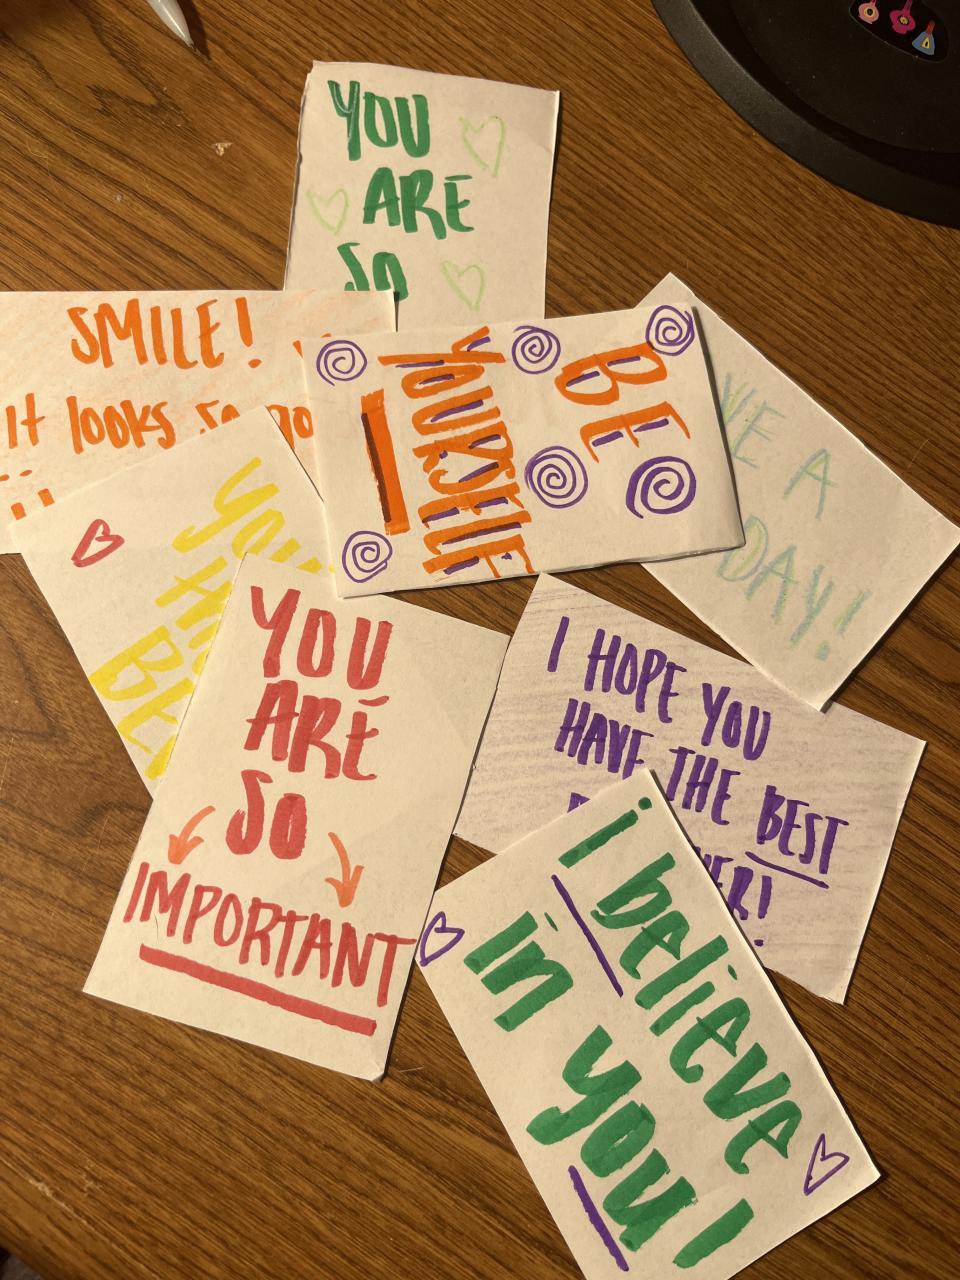 YOU
ARE
SO
SMILE!
It looks so
BE
YOURSELF
A
DAY!
YOU
ARE
SO
IMPORTANT
I HOPE YOU
HAVE THE BEST
i believe
in you!